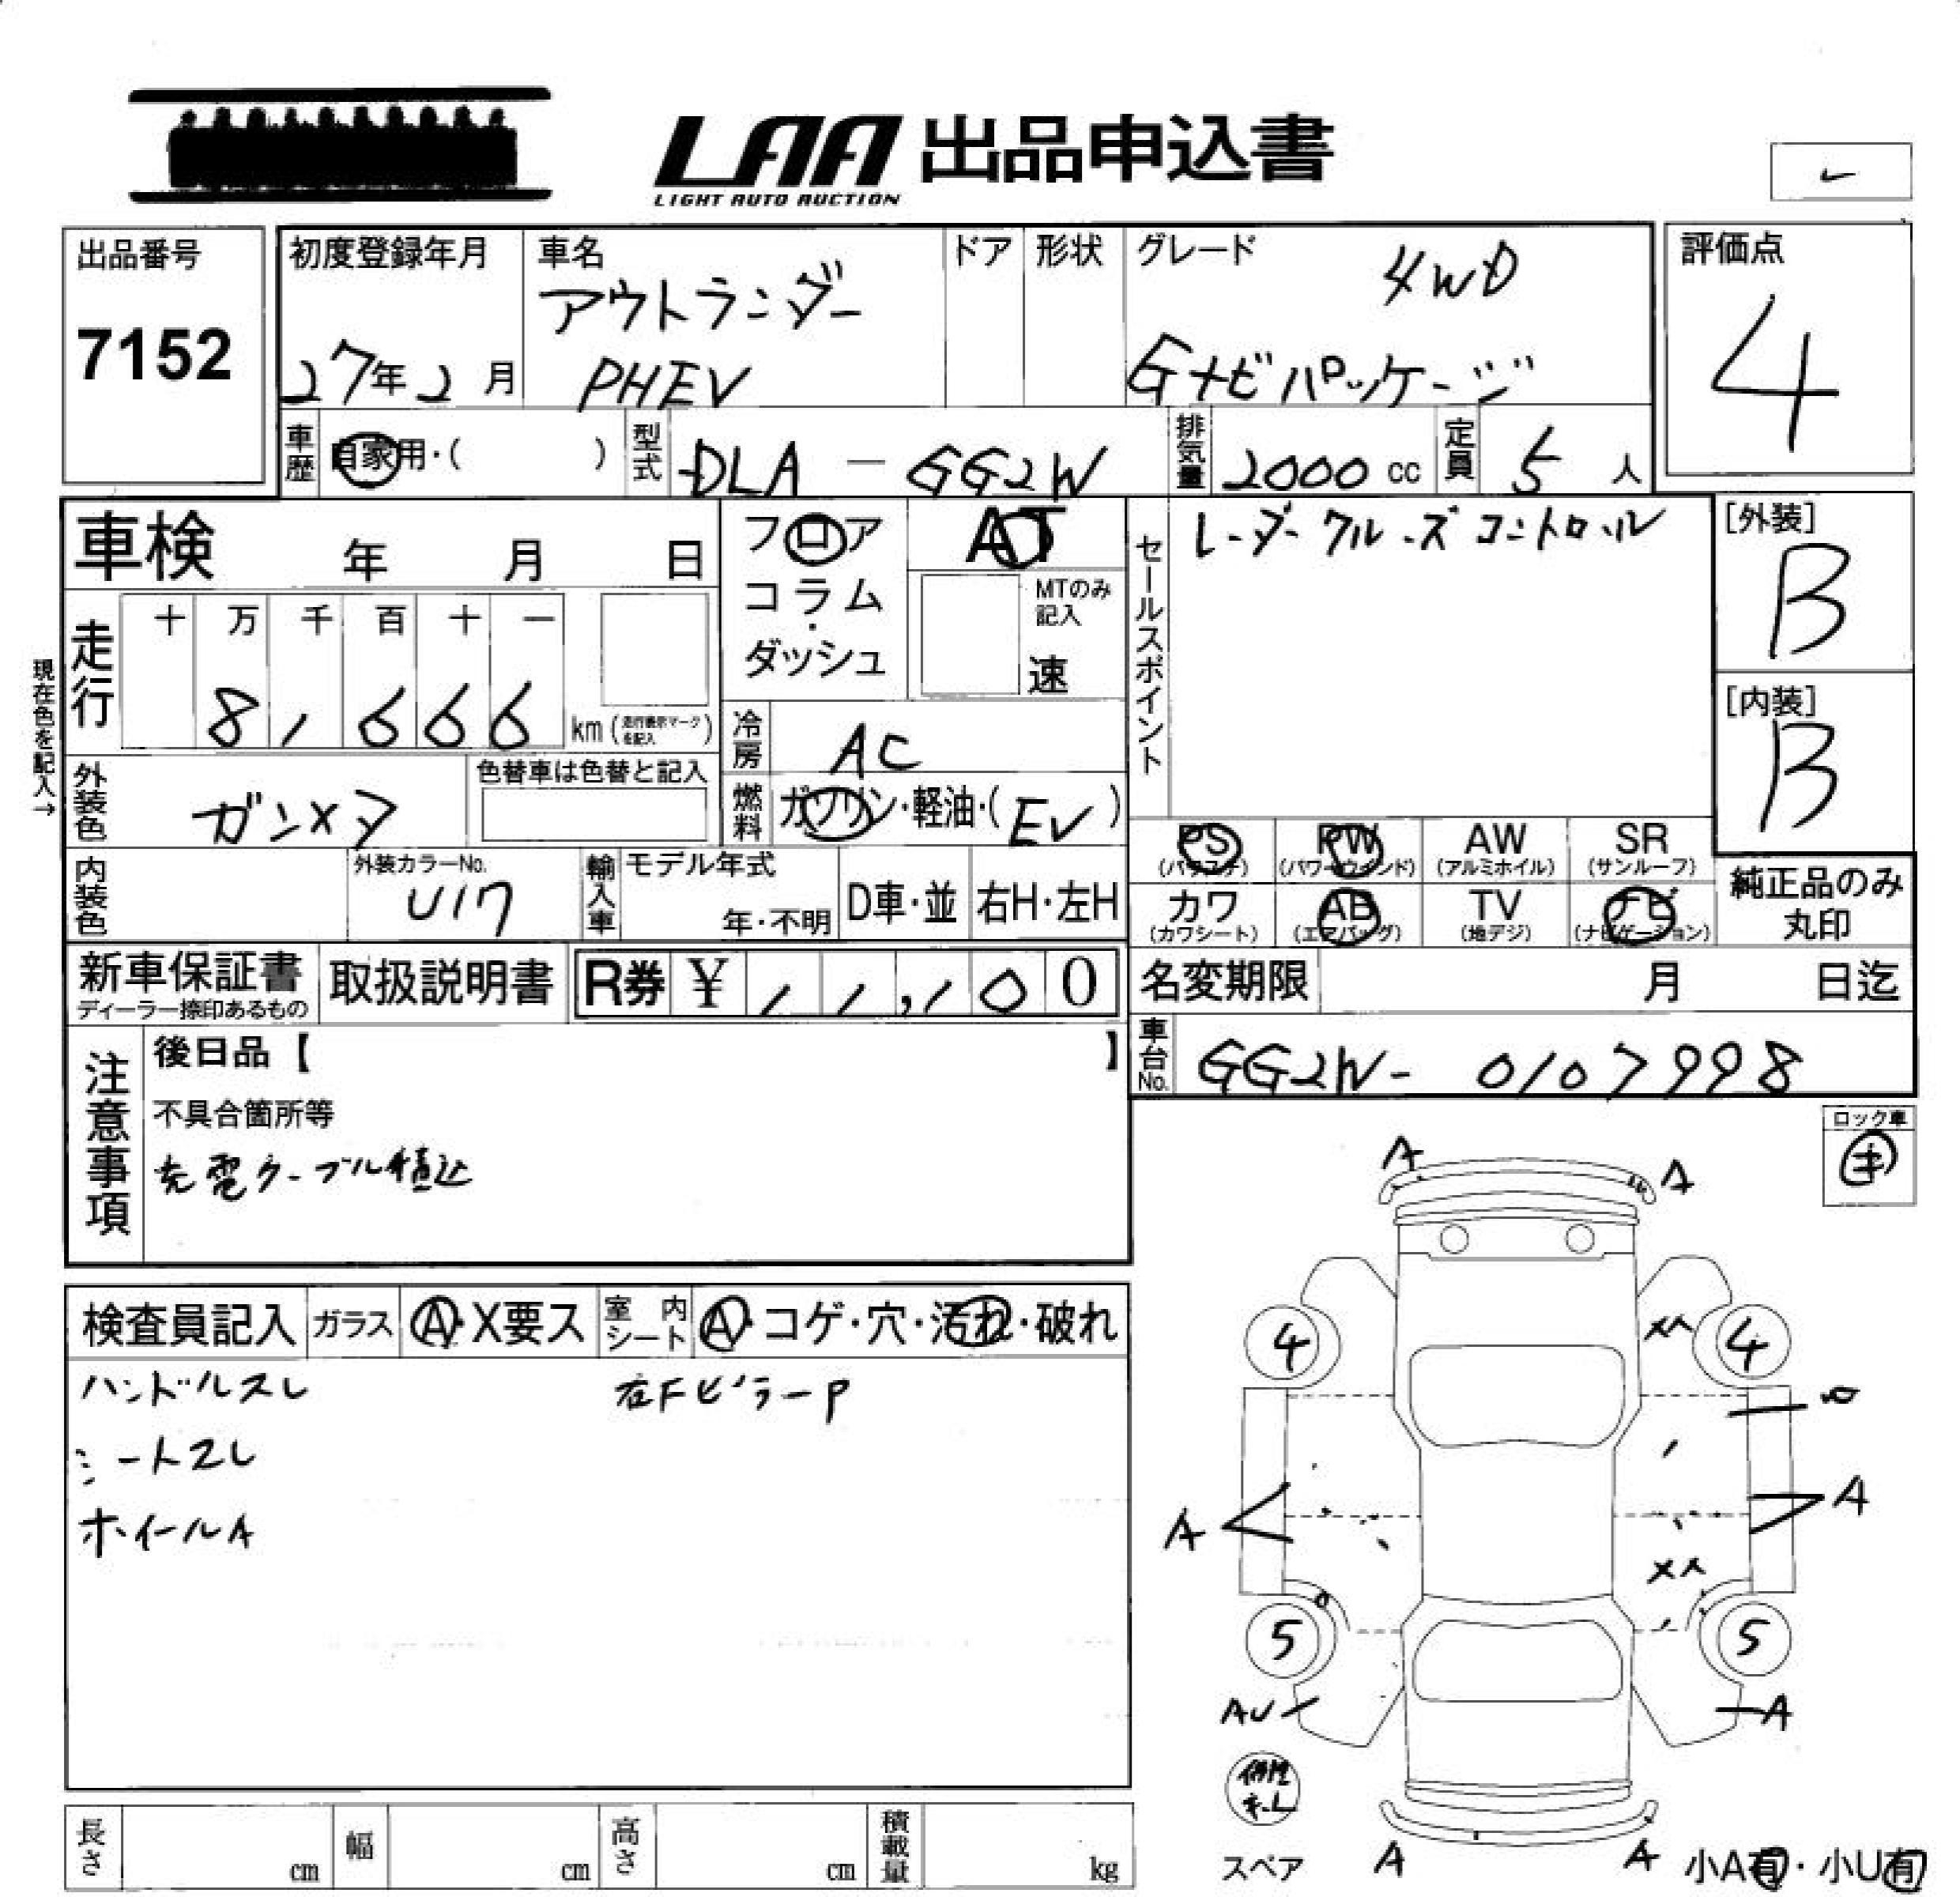 LAA 出品申込書
LIGHT AUTO AUCTION
出品番号
7152
初度登録年月
27年2月
車名
アウトランダー
PHEV
ドア
形状
グレード
4WD
Gナビパッケージ
評価点
4
車歴
自家用・( )
型式
DLA - GG2W
排気量
2000 cc
定員
5 人
車検 年 月 日
フロア
コラム
・
ダッシュ
AT
MTのみ
記入
速
セールスポイント
レーダークルーズコントロール
[外装]
B
[内装]
B
現在色を記入→
走行
十 万 千 百 十 一
8, 666
km (走行表示マークを記入)
冷房
AC
外装色
ガンメタ
色替車は色替と記入
燃料
ガソリン・軽油・(EV)
PS
(パワステ)
PW
(パワーウインド)
AW
(アルミホイル)
SR
(サンルーフ)
カワ
(カワシート)
AB
(エアバッグ)
TV
(地デジ)
ナビ
(ナビゲーション)
純正品のみ
丸印
内装色
外装カラーNo.
U17
輸入車
モデル年式
年・不明
D車・並
右H・左H
新車保証書
ディーラー捺印あるもの
取扱説明書
R券 ¥ 11,100
名変期限 月 日迄
車台No.
GG2W- 0107998
注意事項
後日品【 】
不具合箇所等
充電ケーブル積込
ロック車
キ
検査員記入
ガラス
A・X要ス
室内シート
A・コゲ・穴・汚れ・破れ
ハンドルスレ
右FピラーP
シートスレ
ホイールA
A
A
4
4
XX
A
A
XX
5
5
AU
A
スペア
A
A
小A有・小U有
長さ cm
幅 cm
高さ cm
積載量 kg